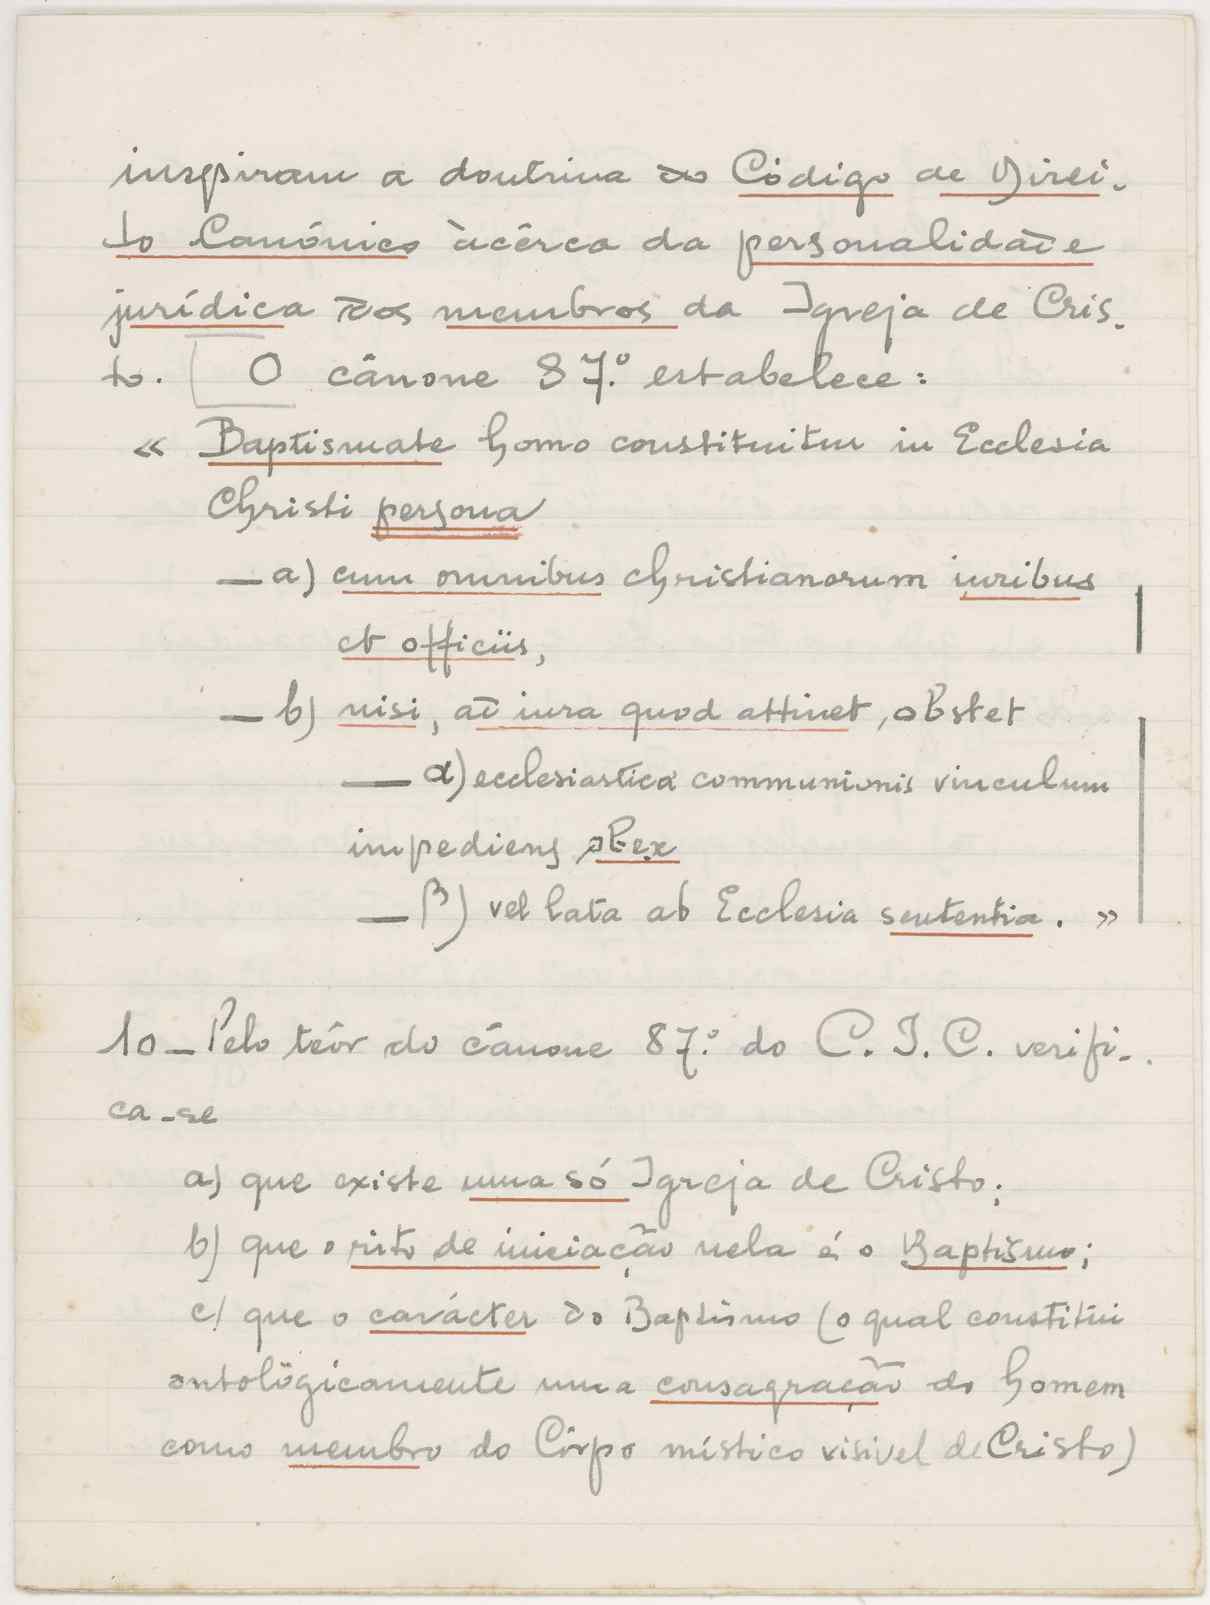 inspiram a doutrina do Código de Direi-
to Canónico àcêrca da personalidade
jurídica dos membros da Igreja de Cris-
to. O cânone 87.º estabelece:
« Baptismate homo constituitur in Ecclesia
Christi persona
— a) cum omnibus christianorum iuribus
et officiis,
— b) nisi, ad iura quod attinet, obstet
— α) ecclesiastica communionis vinculum
impediens obex
— β) vel lata ab Ecclesia sententia. »
10 — Pelo teôr do cânone 87.º do C. I. C. verifi-
ca-se
a) que existe uma só Igreja de Cristo;
b) que o rito de iniciação nela é o Baptismo;
c) que o carácter do Baptismo (o qual constitúi
ontològicamente uma consagração do homem
como membro do Côrpo místico visivel de Cristo)